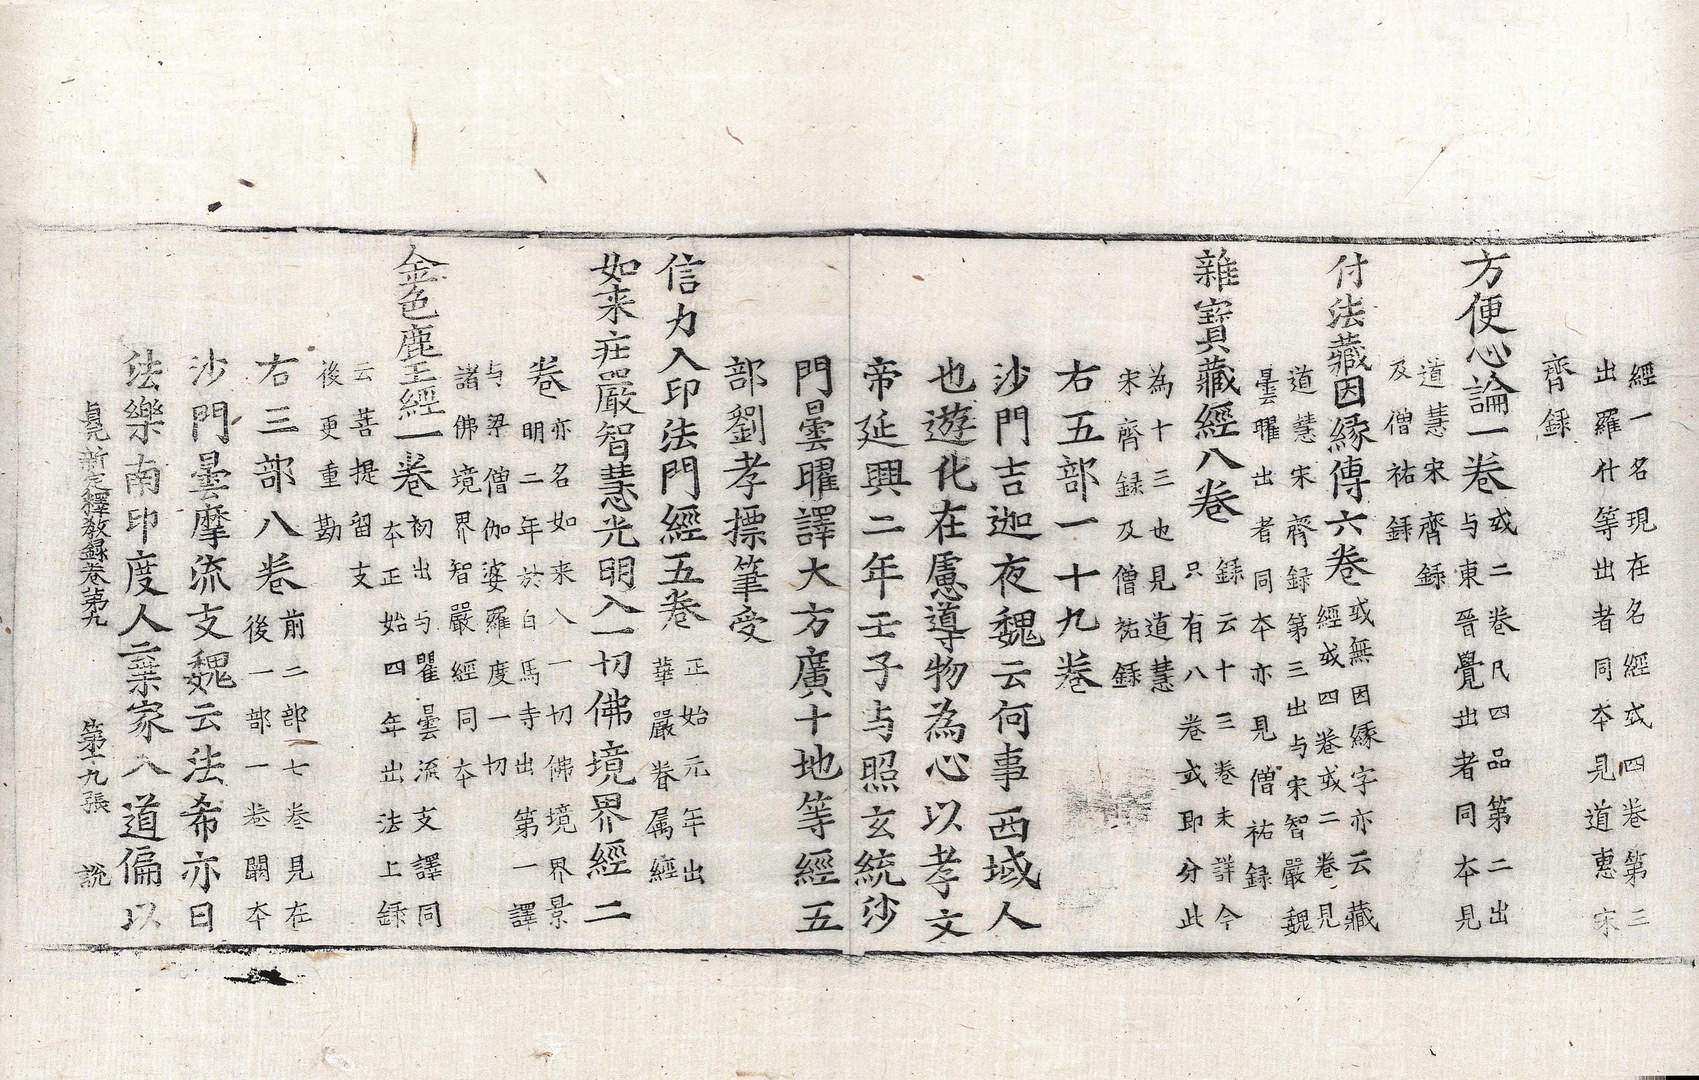 經一名現在名經或四卷第三
出羅什等出者同本見道惠宋
齊録
方便心論一卷或二卷凡四品第二出
与東晉覺出者同本見
道慧宋齊録
及僧祐録
付法藏因緣傳六卷或無因緣字亦云藏
經或四卷或二卷見
道慧宋齊録第三出与宋智嚴魏
曇曜出者同本亦見僧祐録
雜寶藏經八卷録云十三卷未詳今
只有八卷或即分此
為十三也見道慧
宋齊録及僧祐録
右五部一十九卷
沙門吉迦夜魏云何事西域人
也遊化在慮導物為心以孝文
帝延興二年壬子与照玄統沙
門曇曜譯大方廣十地等經五
部劉孝摽筆受
信力入印法門經五卷正始元年出
華嚴眷属經
如来莊嚴智慧光明入一切佛境界經二
卷亦名如来入一切佛境界景
明二年於白馬寺出第一譯
与梁僧伽婆羅度一切
諸佛境界智嚴經同本
金色鹿王經一卷初出与瞿曇流支譯同
本正始四年出法上録
云菩提留支
後更重勘
右三部八卷前二部七卷見在
後一部一卷闕本
沙門曇摩流支魏云法希亦曰
法樂南印度人棄家入道偏以
貞元新定釋教録卷第九　第十九張　說